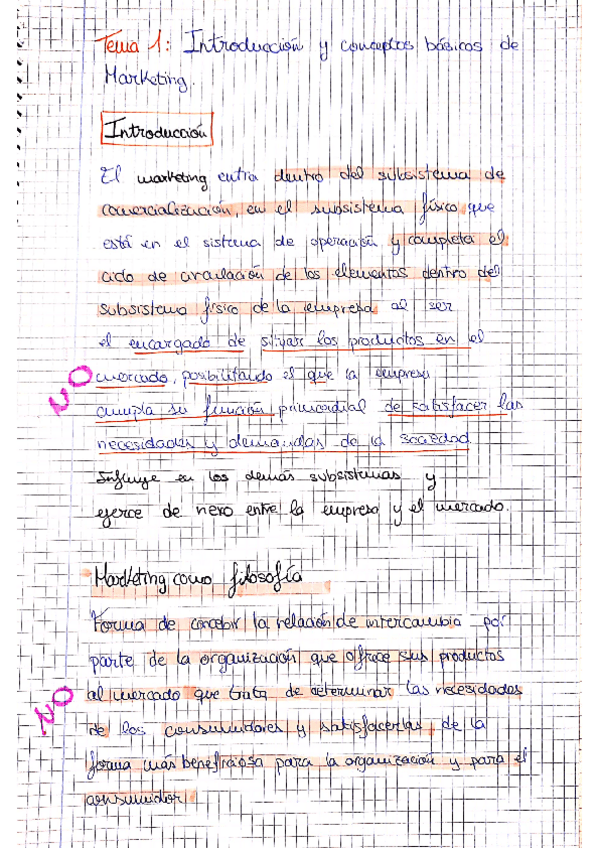 Tema 1: Introducción y conceptos básicos de
Marketing.
Introducción
El marketing entra dentro del subsistema de
comercialización, en el subsistema físico que
está en el sistema de operación y completa el
ciclo de circulación de los elementos dentro del
subsistema físico de la empresa al ser
el encargado de situar los productos en el
NO
mercado, posibilitando el que la empresa
cumpla su función primordial de satisfacer las
necesidades y demandas de la sociedad
Influye en los demás subsistemas y
ejerce de nexo entre la empresa y el mercado.
Marketing como filosofía
Forma de concebir la relación de intercambio por
parte de la organización que ofrece sus productos
NO
al mercado que trata de determinar las necesidades
de los consumidores y satisfacerlas, de la
forma más beneficiosa para la organización y para el
consumidor.